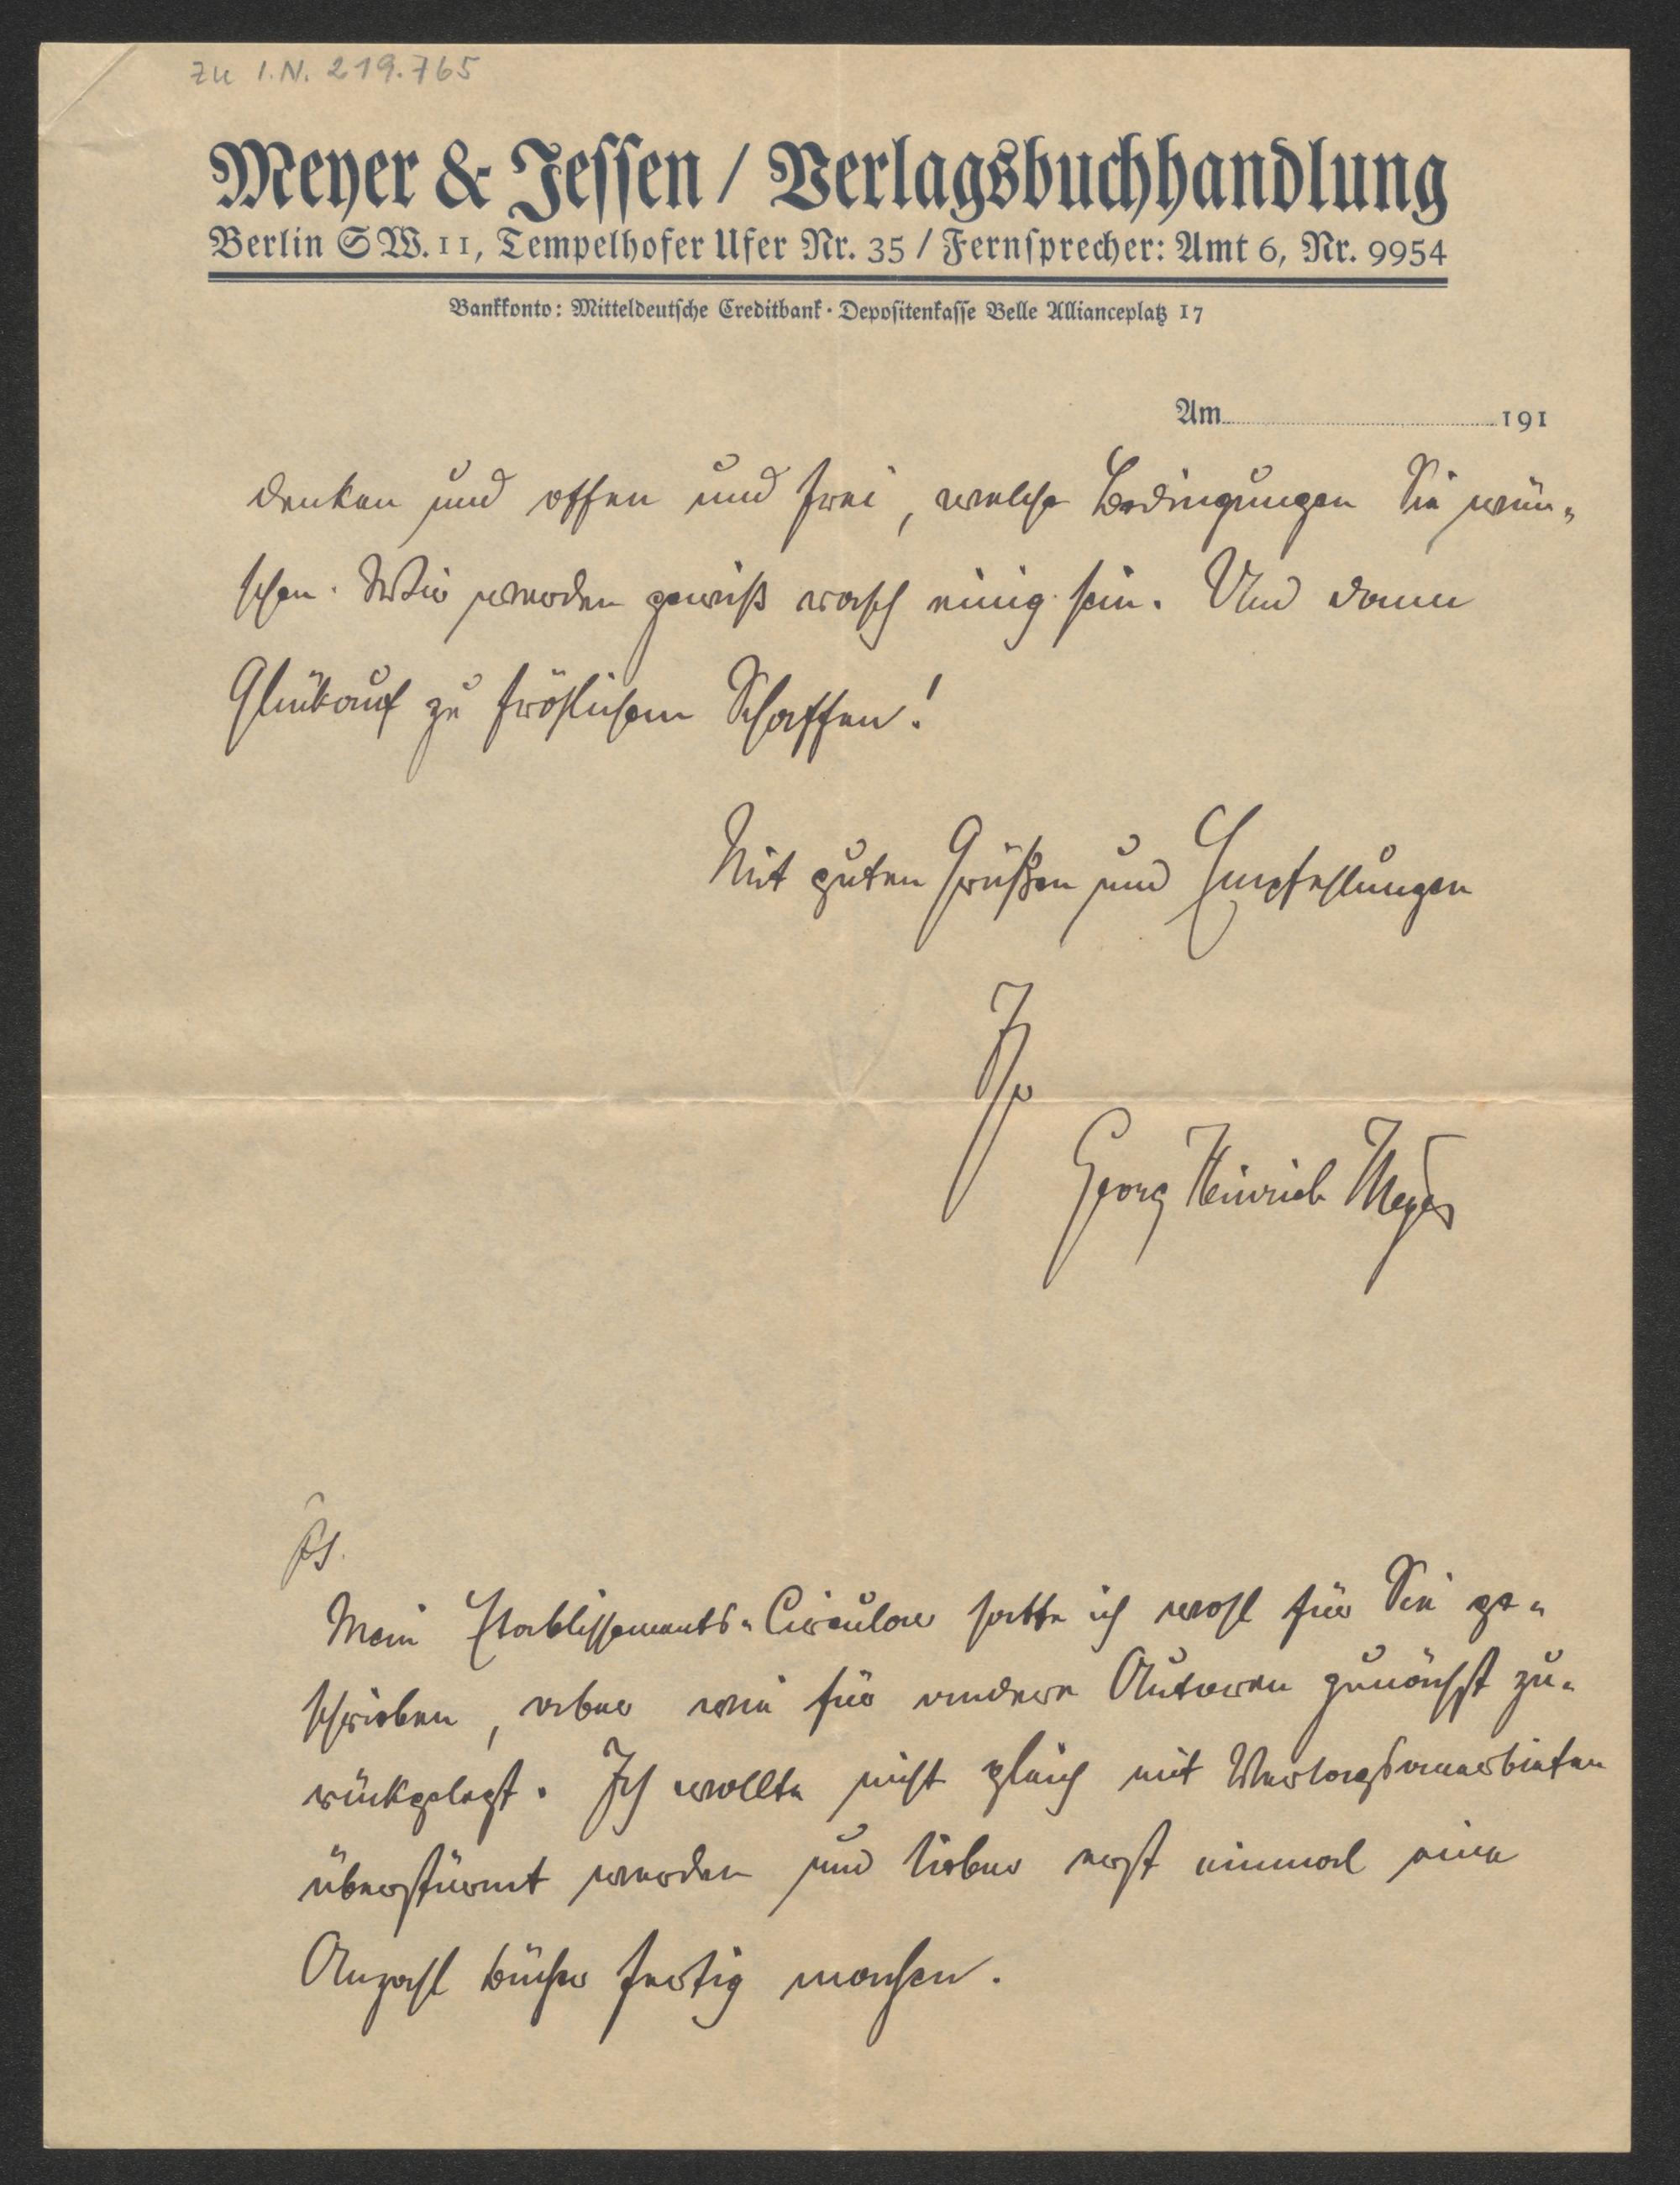 zu I.N. 219.765
Meyer & Jessen / Verlagsbuchhandlung
Berlin SW. 11, Tempelhofer Ufer Nr. 35 / Fernsprecher: Amt 6, Nr. 9954
Bankkonto: Mitteldeutsche Creditbank · Depositenkasse Belle Allianceplatz 17
Am 191
denken und offen und frei, welche Bedingungen Sie wün-
schen. Wir werden gewiß rasch einig sein. Und dann
Glückauf zu fröhlichem Schaffen!
Mit guten Grüßen und Empfehlungen
Ihr
Georg Heinrich Meyer
PS.
Mein Etablissements-Circular hatte ich wohl für Sie ge-
schrieben, aber wie für andere Autoren zunächst zu-
rückgelegt. Ich wollte nicht gleich mit Verlagsanerbieten
überstürmt werden und lieber erst einmal eine
Anzahl Bücher fertig machen.